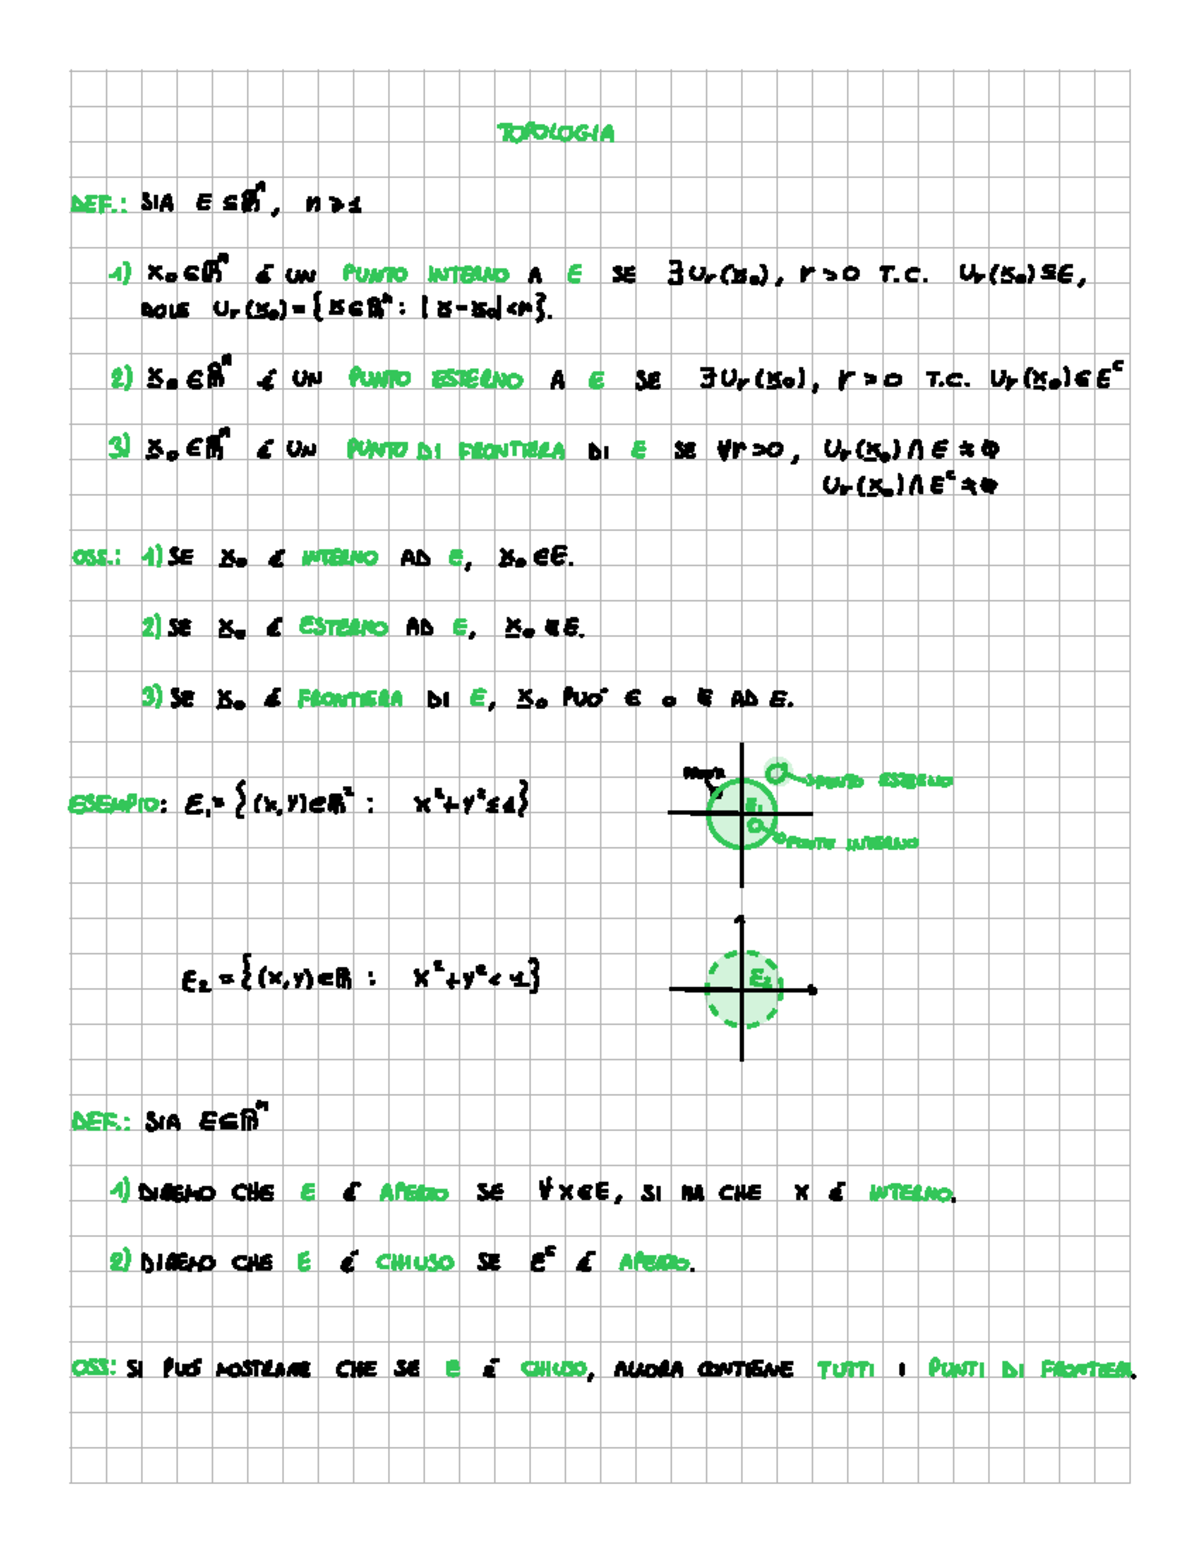 TOPOLOGIA
DEF.: SIA E ⊆ ℝⁿ, n ≥ 1
1) x₀ ∈ ℝⁿ É UN PUNTO INTERNO A E SE ∃ Ur(x₀), r > 0 T.C. Ur(x₀) ⊆ E,
DOVE Ur(x₀) = {x ∈ ℝⁿ : |x - x₀| < r}.
2) x₀ ∈ ℝⁿ É UN PUNTO ESTERNO A E SE ∃ Ur(x₀), r > 0 T.C. Ur(x₀) ⊆ Eᶜ
3) x₀ ∈ ℝⁿ É UN PUNTO DI FRONTIERA DI E SE ∀r > 0, Ur(x₀) ∩ E ≠ ∅
Ur(x₀) ∩ Eᶜ ≠ ∅
OSS.: 1) SE x₀ É INTERNO AD E, x₀ ∈ E.
2) SE x₀ É ESTERNO AD E, x₀ ∉ E.
3) SE x₀ É FRONTIERA DI E, x₀ PUÓ ∈ O ∉ AD E.
ESEMPIO: E₁ = {(x, y) ∈ ℝ² : x² + y² ≤ 1}
PUNTO ESTERNO
E₁
PUNTO INTERNO
E₂ = {(x, y) ∈ ℝ : x² + y² < 1}
E₂
DEF.: SIA E ⊆ ℝⁿ
1) DIREMO CHE E É APERTO SE ∀x ∈ E, SI HA CHE x É INTERNO.
2) DIREMO CHE E É CHIUSO SE Eᶜ É APERTO.
OSS: SI PUÓ MOSTRARE CHE SE E É CHIUSO, ALLORA CONTIENE TUTTI I PUNTI DI FRONTIERA.